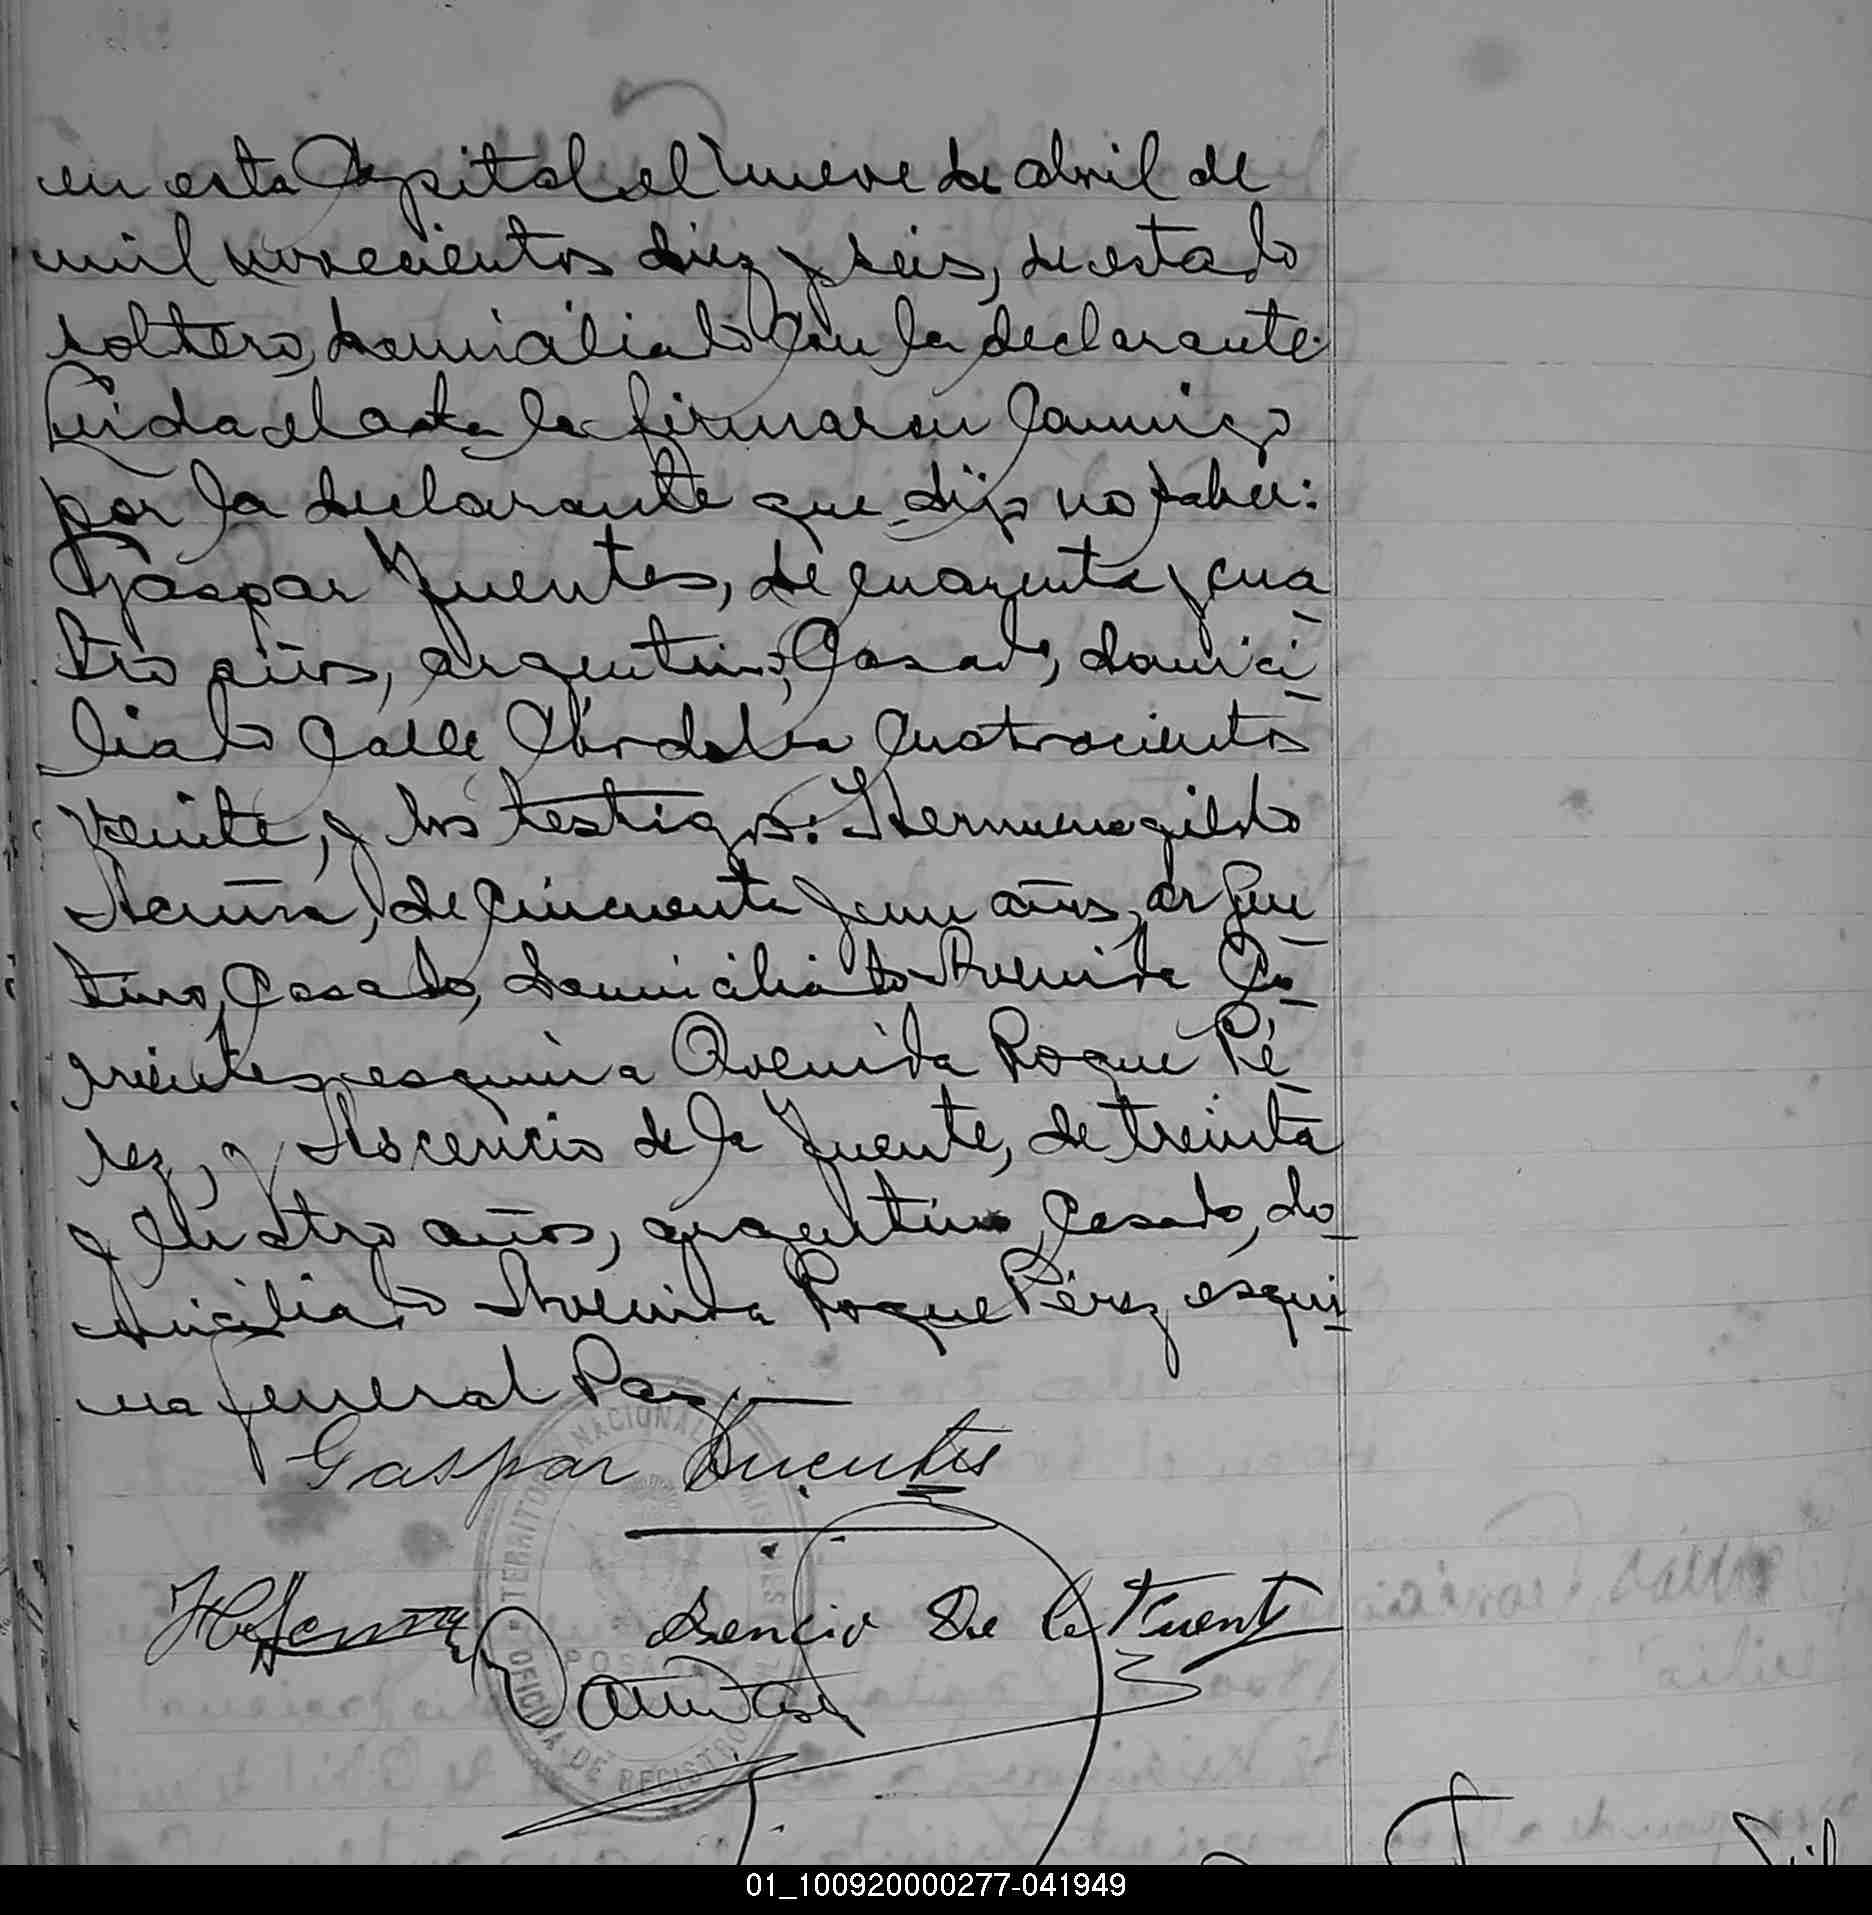 en esta Capital el nueve de abril de
mil novecientos diez y seis, de estado
soltero, domiciliado con la declarante.
Leida el acta la firmaron conmigo
por la declarante que dijo no saber:
Gaspar Fuentes, de cuarenta y cua
tro años, argentino, casado, domici
liado calle Córdoba cuatrocientos
veinte, y los testigos: Hermenegildo
Acuña, de cincuenta y un años, argen
tino, casado, domiciliado Avenida Co
rrientes esquina Avenida Roque Pé
rez, y Ascencio de la Fuente, de treinta
y cuatro años, argentino, casado, do
miciliado Avenida Roque Pérez esqui
na General Paz.
Gaspar Fuentes
H Acuña
Asencio De la Fuente
TERRITORIO NACIONAL MISIONES
POSADAS
OFICINA DE REGISTRO
01_100920000277-041949